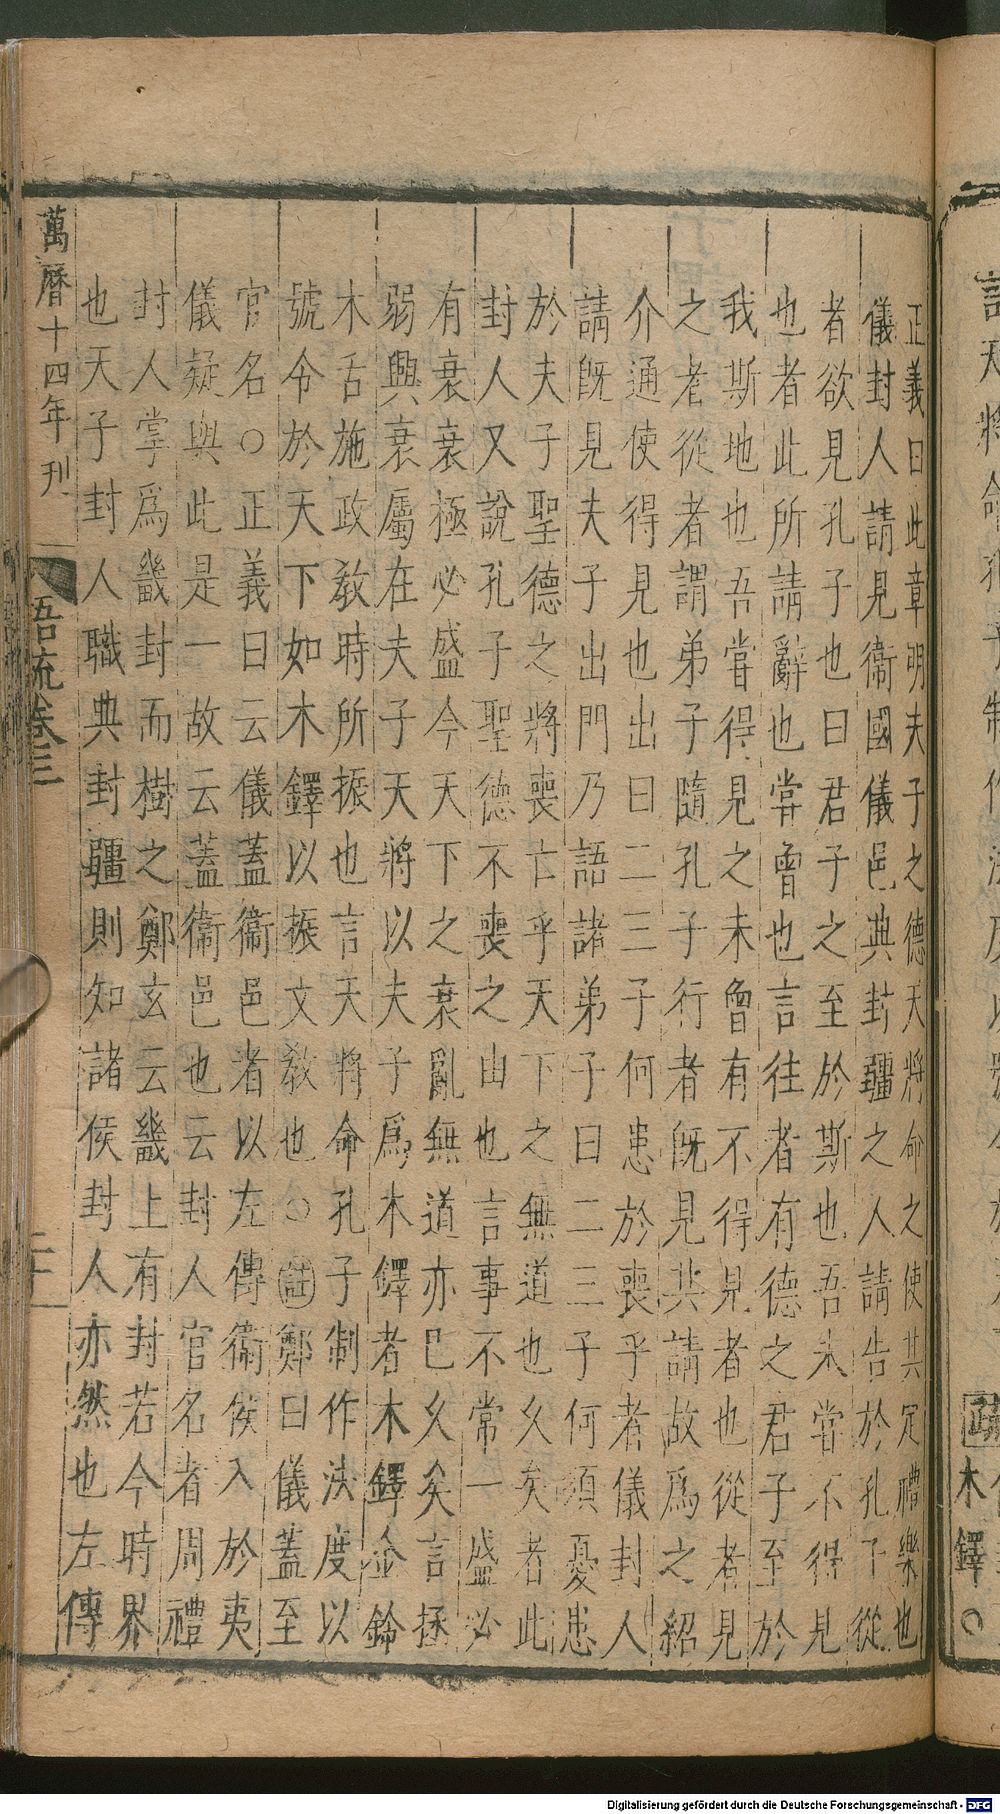 正義曰此章明夫子之德天將命之使其定禮樂也
儀封人請見衞國儀邑典封疆之人請告於孔子從
者欲見孔子也曰君子之至於斯也吾未嘗不得見
也者此所請辭也嘗曾也言往者有德之君子至於
我斯地也吾嘗得見之未曾有不得見者也從者見
之者從者謂弟子隨孔子行者旣見其請故爲之紹
介通使得見也出曰二三子何患於喪乎者儀封人
請旣見夫子出門乃語諸弟子曰二三子何須憂患
於夫子聖德之將喪亡乎天下之無道也久矣者此
封人又說孔子聖德不喪之由也言事不常一盛必
有衰衰極必盛今天下之衰亂無道亦已久矣言拯
弱興衰屬在夫子天將以夫子爲木鐸者木鐸金鈴
木舌施政敎時所振也言天將命孔子制作法度以
號令於天下如木鐸以振文敎也○註鄭曰儀蓋至
官名○正義曰云儀蓋衞邑者以左傳衞侯入於夷
儀疑與此是一故云蓋衞邑也云封人官名者周禮
封人掌爲畿封而樹之鄭玄云畿上有封若今時界
也天子封人職典封疆則知諸侯封人亦然也左傳
萬曆十四年刊
語疏卷三
二十
疏
木鐸○
Digitalisierung gefördert durch die Deutsche Forschungsgemeinschaft - DFG